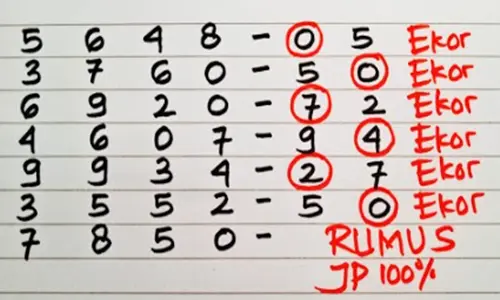 5 6 4 8 - 0 5 Ekor
3 7 6 0 - 5 0 Ekor
6 9 2 0 - 7 2 Ekor
4 6 0 7 - 9 4 Ekor
9 9 3 4 - 2 7 Ekor
3 5 5 2 - 5 0 Ekor
7 8 5 0 - RUMUS
JP 100%